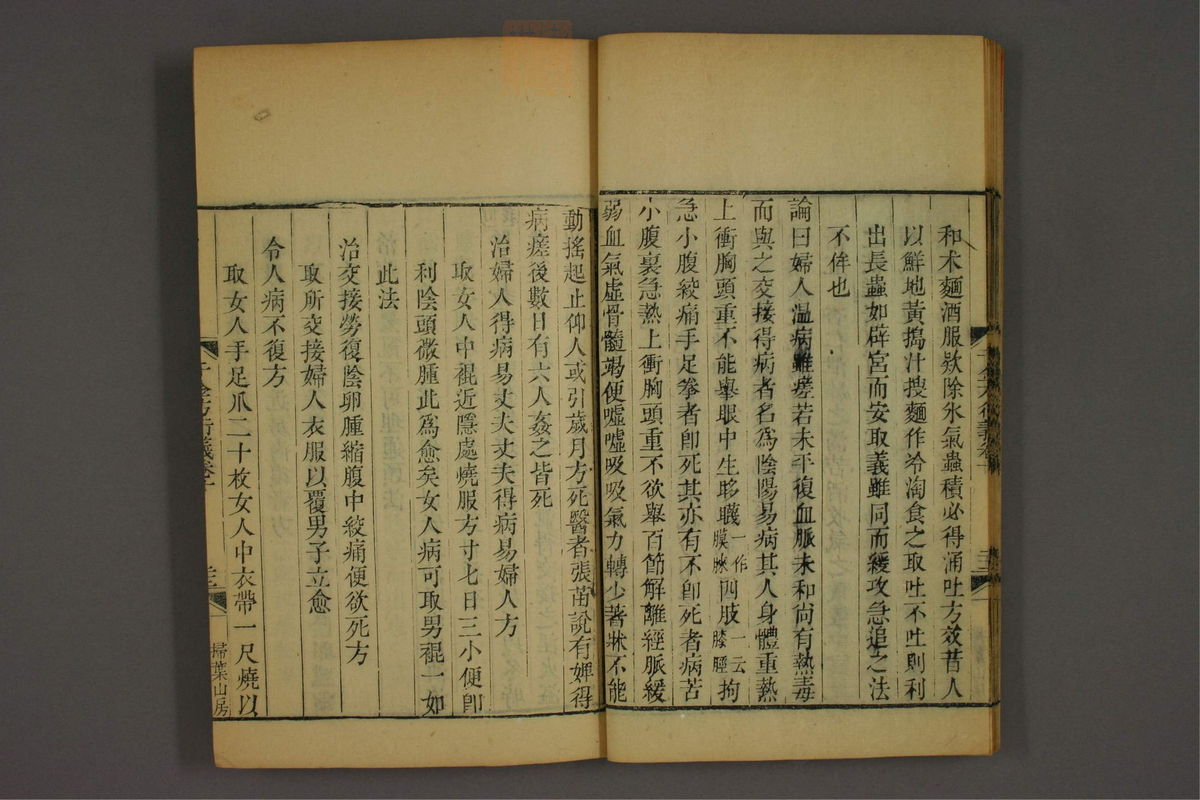 和朮麵酒服欵除氷氣蟲積必得涌吐方效昔人
以鮮地黃搗汁搜麵作冷淘食之取吐不吐則利
出長蟲如辟宮而安取義雖同而緩攻急追之法
不侔也
論曰婦人温病雖瘥若未平復血脈未和尙有熱毒
而與之交接得病者名爲陰陽易病其人身體重熱
上衝胸頭重不能舉眼中生眵䁾一作膜䐄四肢一云膝脛拘
急小腹絞痛手足拳者卽死其亦有不卽死者病苦
小腹裏急熱上衝胸頭重不欲舉百節解離經脈緩
弱血氣虛骨髓竭便噓噓吸吸氣力轉少著牀不能
動搖起止仰人或引歲月方死醫者張苗說有婢得
病瘥後數日有六人姦之皆死
治婦人得病易丈夫丈夫得病易婦人方
取女人中裩近隱處燒服方寸匕日三小便卽
利陰頭微腫此爲愈矣女人病可取男裩一如
此法
治交接勞復陰卵腫縮腹中絞痛便欲死方
取所交接婦人衣服以覆男子立愈
令人病不復方
取女人手足爪二十枚女人中衣帶一尺燒以
千金方衍義卷十
掃葉山房